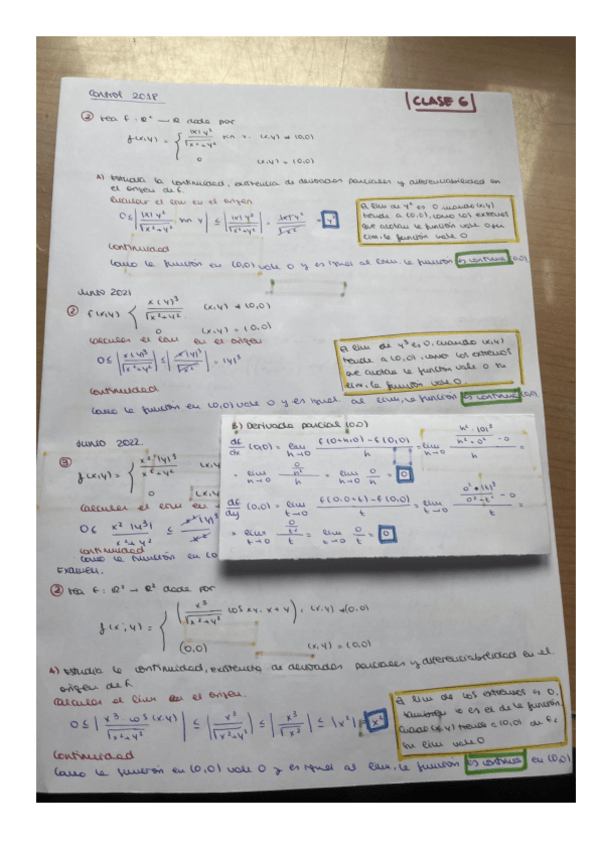 Control 2018
CLASE 6
② Sea f: ℝ² → ℝ dada por
f(x,y) = { |x|y² / √(x²+y²) sen y. (x,y) ≠ (0,0)
0 (x,y) = (0,0)
A) Estudia la continuidad, existencia de derivadas parciales y diferenciabilidad en
el origen de f.
Calcular el lim en el origen
0 ≤ | |x|y² / √(x²+y²) · sen y | ≤ | |x|y² / √(x²+y²) | = |x|y² / √x² = y²
El lim de y² es 0 cuando (x,y)
tiende a (0,0), como los extremos
que acotan la función vale 0 su
lim, la función vale 0.
Continuidad
Como la función en (0,0) vale 0 y es igual al lim, la función es continua (0,0)
Junio 2021
② f(x,y) { x(y)³ / √(x²+y²) (x,y) ≠ (0,0)
0 (x,y) = (0,0)
Calcular el lim en el origen
0 ≤ | x(y)³ / √(x²+y²) | ≤ | x(y)³ / √x² | = |y|³
El lim de y³ es 0, cuando (x,y)
tiende a (0,0), como los extremos
que acotan la función vale 0 su
lim, la función vale 0.
Continuidad
Como la función en (0,0) vale 0 y es igual al lim, la función es continua (0,0)
Junio 2022.
③ f(x,y) = { x²|y|³ / x²+y² (x,y
0 (x,y
Calcular el lim en el
0 ≤ x²|y³| / x²+y² ≤ x²|y|³ / x²
Continuidad
Como la función en (0
B) Derivada parcial (0,0)
df/dx (0,0) = lim h→0 f(0+h,0) − f(0,0) / h = lim h→0 (h²·|0|³ / h²+0² − 0) / h =
= lim h→0 (0/h²) / h = lim h→0 0/h = 0
df/dy (0,0) = lim t→0 f(0,0+t) − f(0,0) / t = lim t→0 (0²·|t|³ / 0²+t² − 0) / t =
= lim t→0 (0/t²) / t = lim t→0 0/t = 0
Examen.
② Sea f: ℝ² → ℝ² dada por
f(x,y) = { ( x³ / √(x²+y²) cos xy, x+y ), (x,y) ≠ (0,0)
(0,0) (x,y) = (0,0)
A) Estudia la continuidad, existencia de derivadas parciales y diferenciabilidad en el
origen de f.
Calcular el lim en el origen.
0 ≤ | x³·cos(x,y) / √(x²+y²) | ≤ | x³ / √(x²+y²) | ≤ | x³ / √x² | ≤ |x²| = x²
El lim de los extremos es 0,
también lo es el de la función
cuando (x,y) tiende a (0,0) de f,
su lim vale 0
Continuidad
Como la función en (0,0) vale 0 y es igual al lim, la función es continua en (0,0)